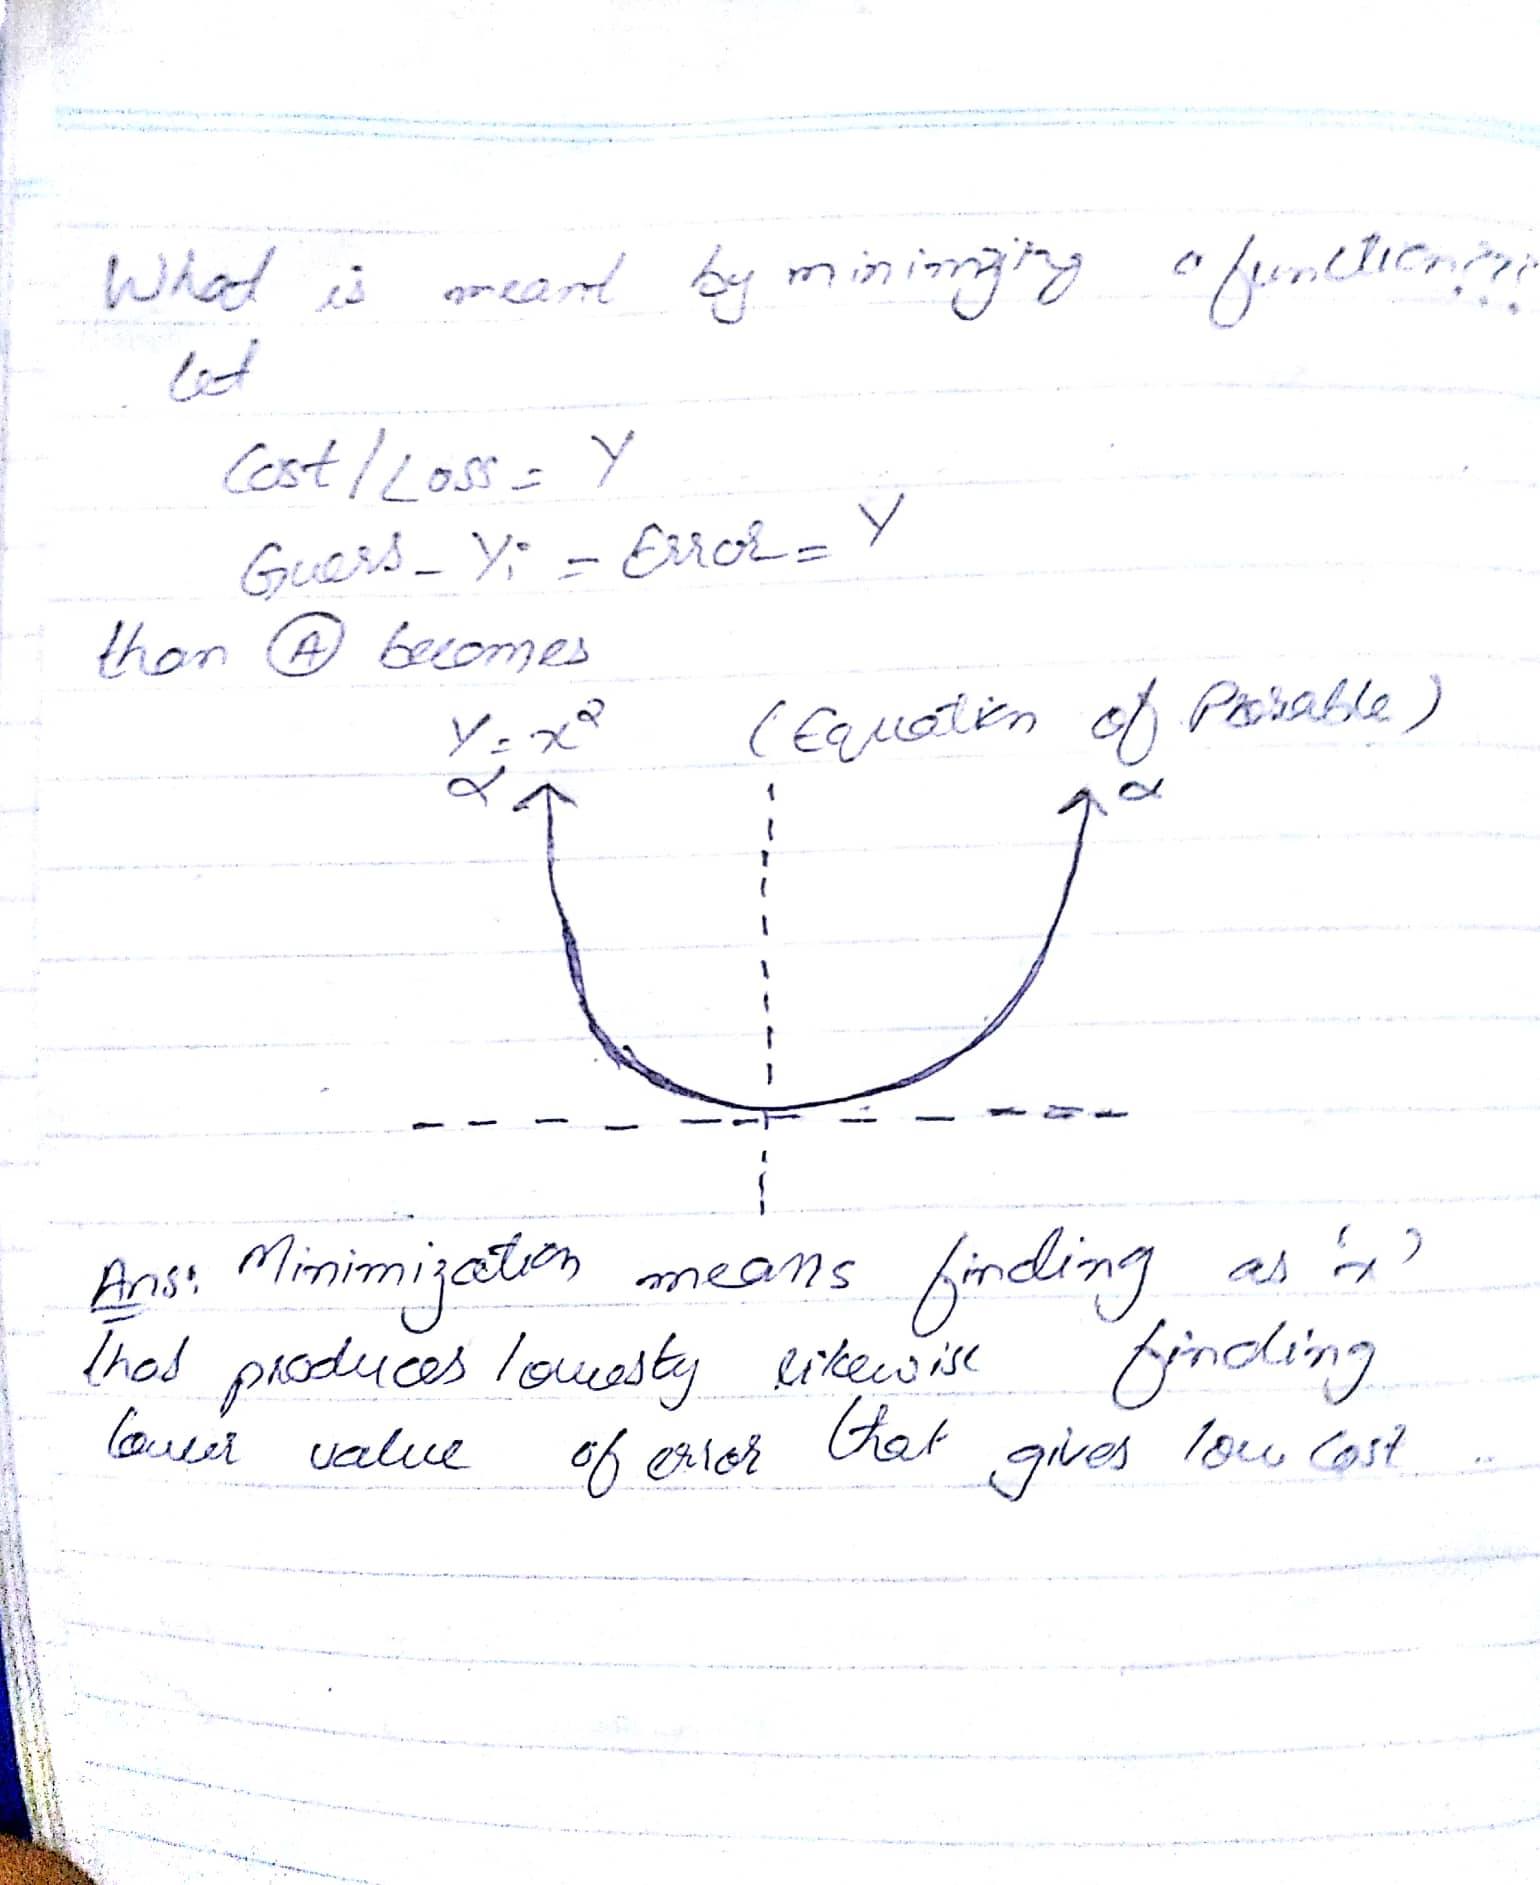 What is meant by minimizing a function???
let
Cost/Loss = Y
Guess - Yi = Error = Y
than Ⓐ becomes
Y = x² (Equation of Parabla)
α α
Ans: Minimization means finding as 'x'
that produces lowesty likewise finding
lower value of error that gives low cost ..